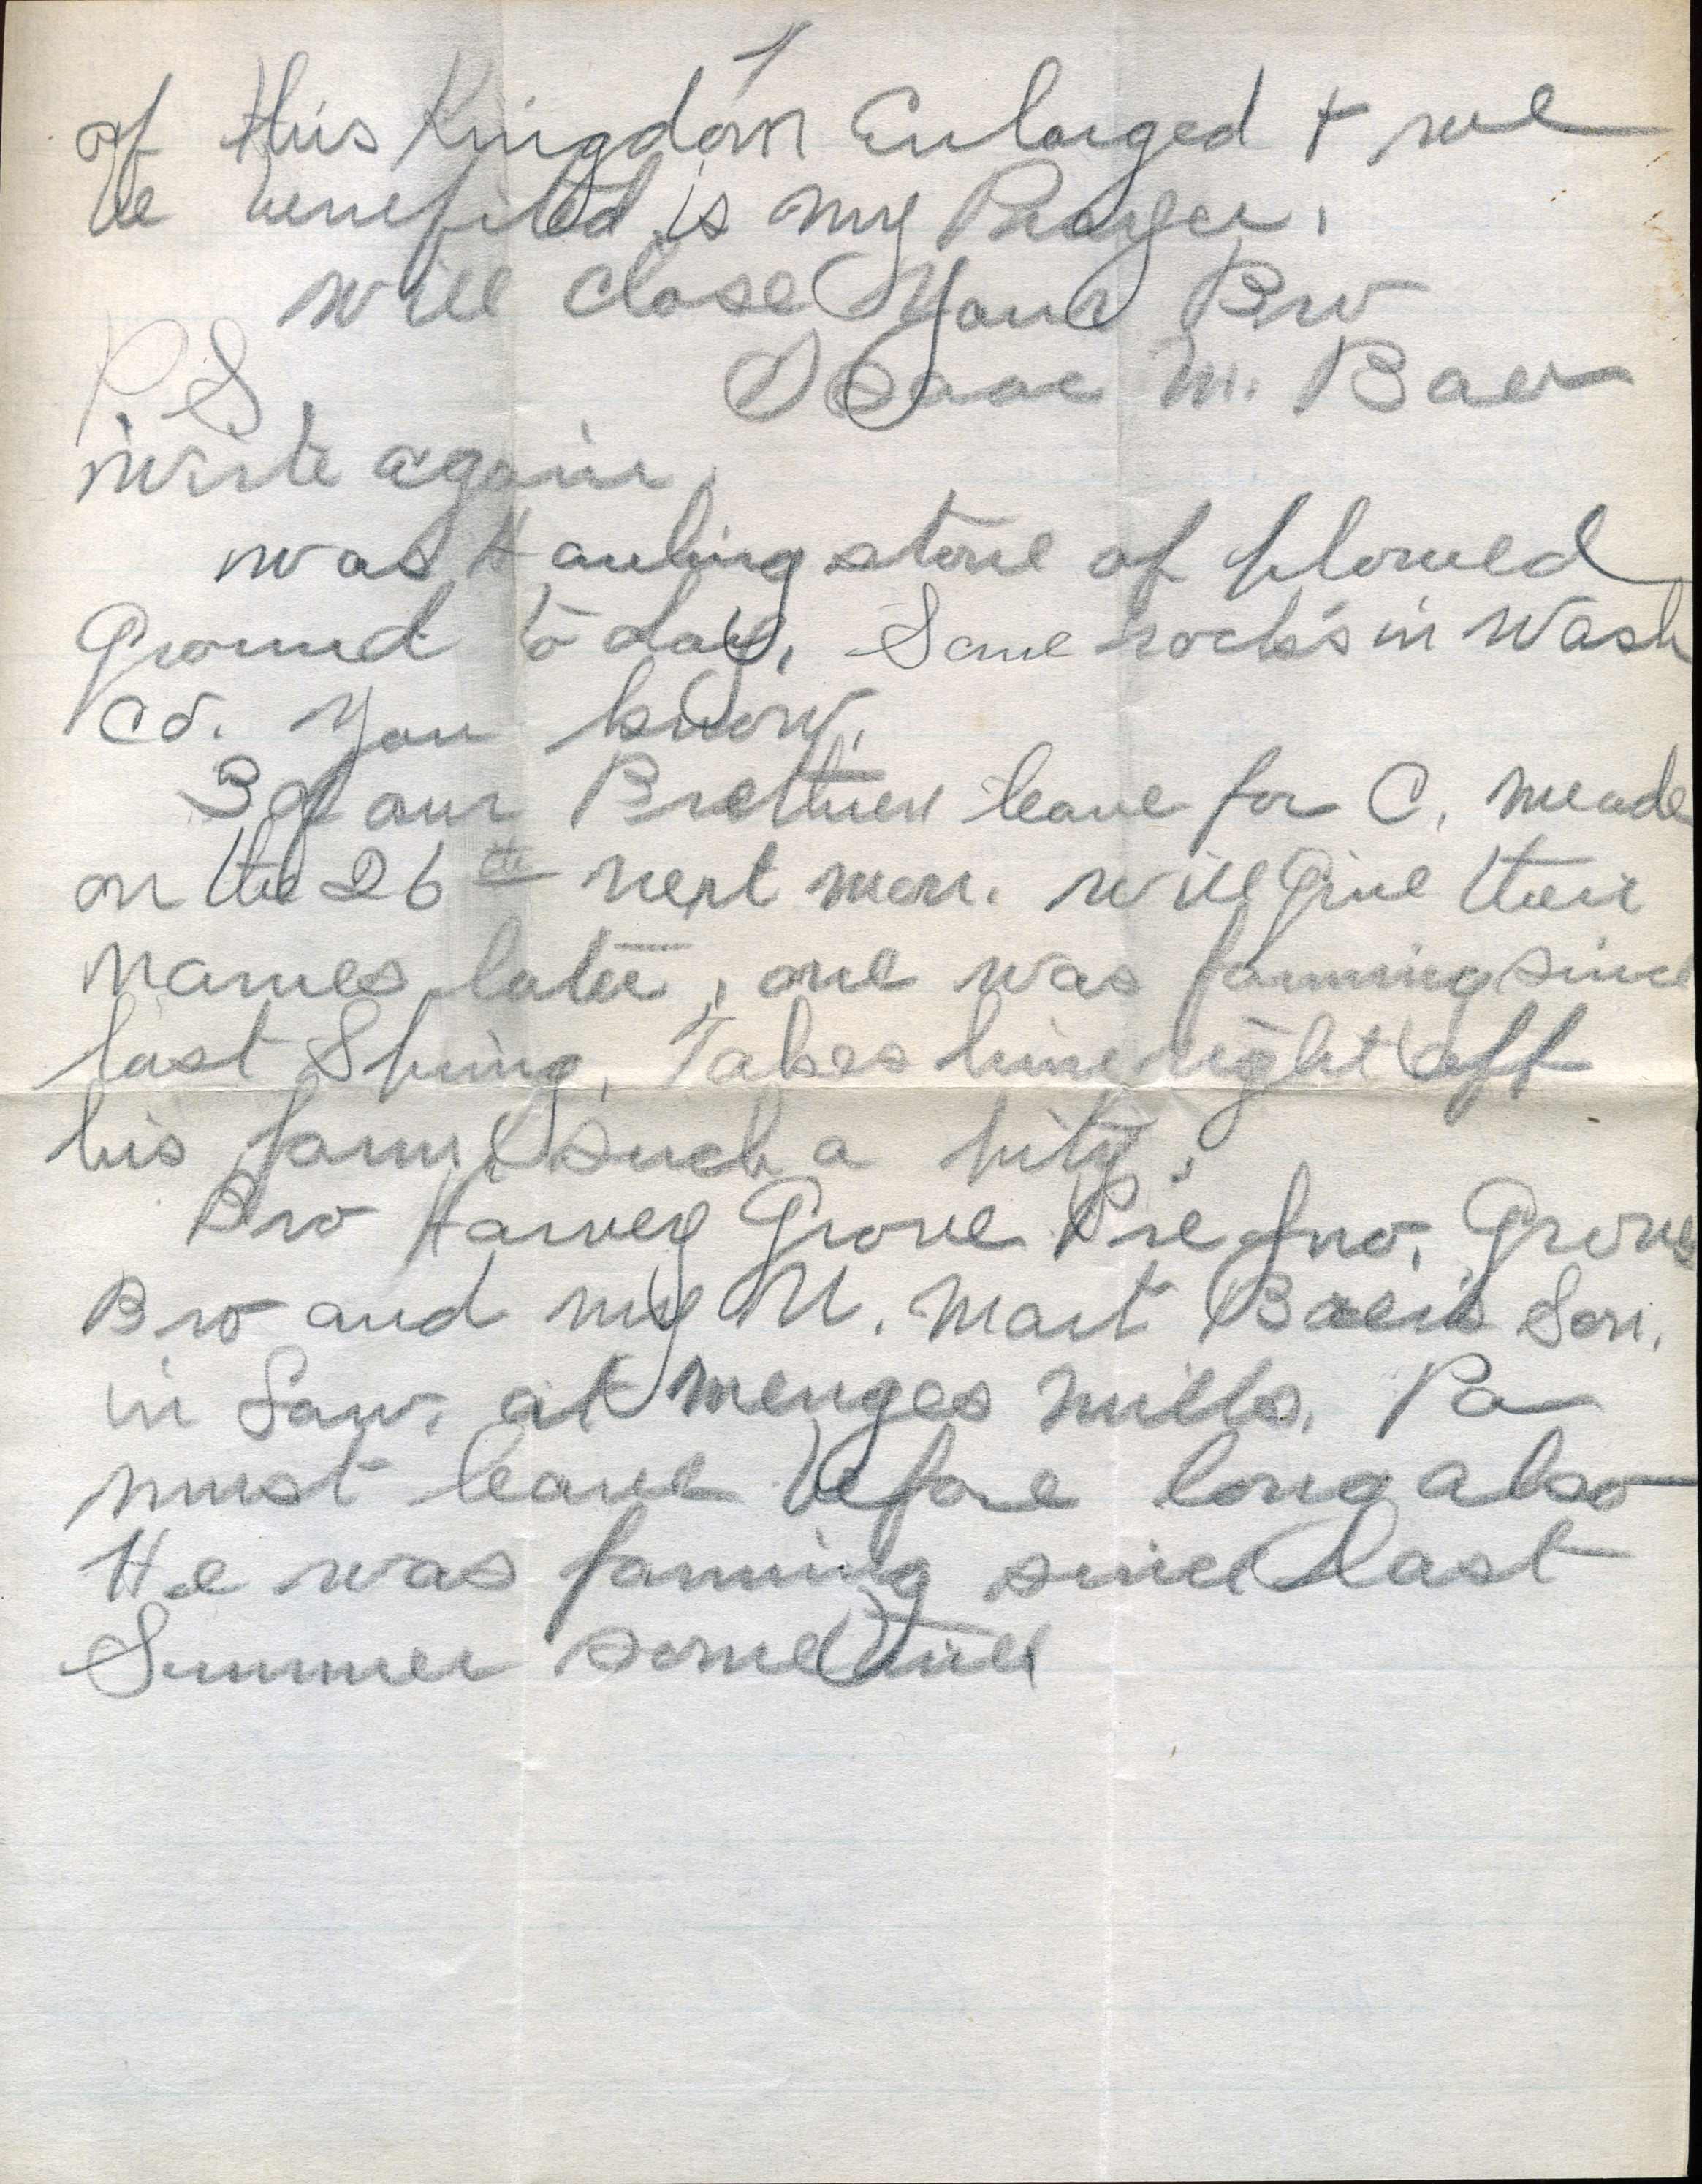 of this Kingdom Enlarged + we
be benefited is my Prayer.
will close Your Bro
Isaac M. Baer
P.S.
write again.
was Hauling stone of plowed
Ground to day, Some rocks in Wash
Co. You know.
3 of our Brethren leave for C. Meade
on the 26th next mon. will Give their
names later, one was farming since
last Spring, Takes him right off
his farm, such a pity.
Bro Harvey Grove Pre Jno. Groves
Bro and my U. Mart Baer's Son
in Law. at Menges Mills. Pa
must leave before long also
He was farming since last
Summer sometime